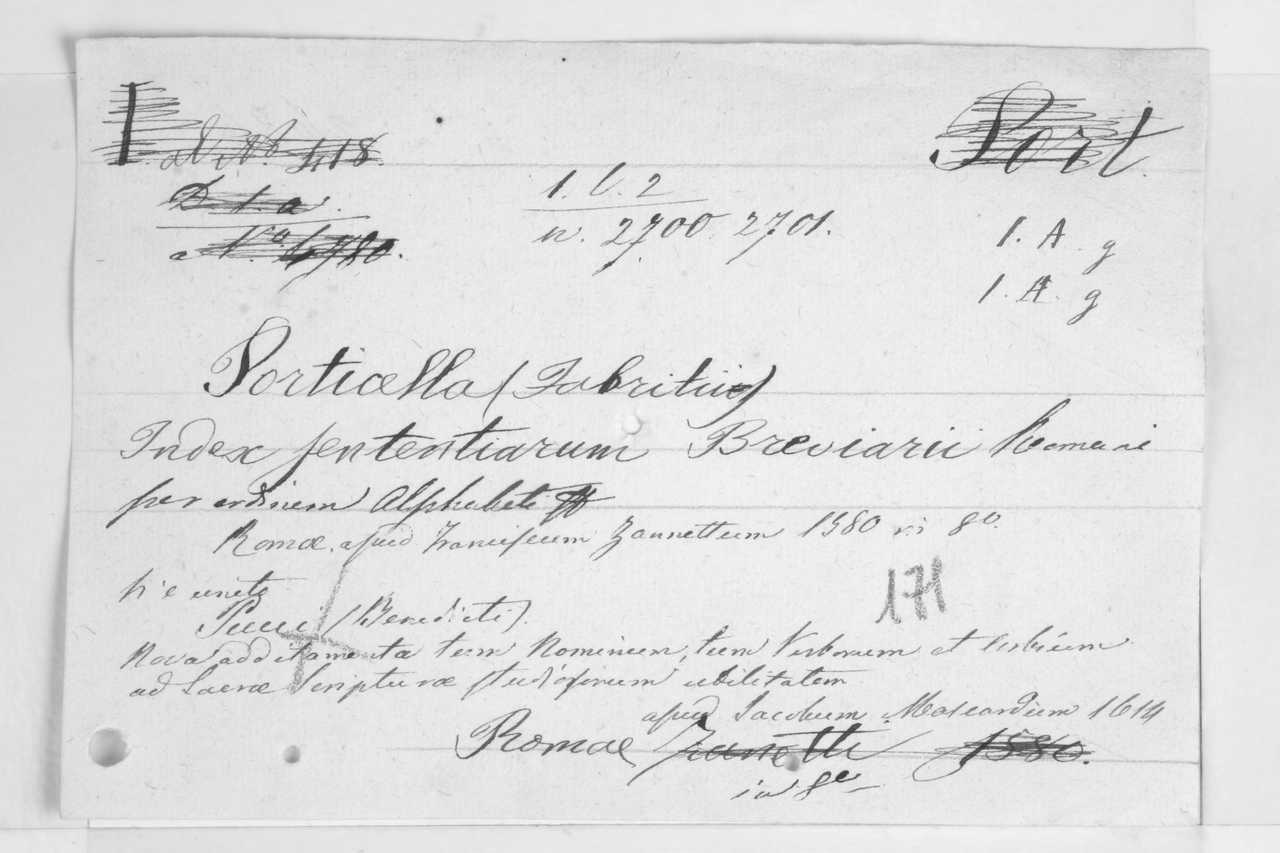 Port.
ad N.º 418
D. 1. a.
1. 6. 2
n. 2700. 2701.
a N.º 6780.
1. A. g
1. A. g
Porticella (Fabritii)
Index sententiarum Breviarii Romani
per ordinem Alphabeti
Romæ. apud Franciscum Zannettum 1580 in 8º.
Pucci (Benedicti).
171
Nova additamenta tum Nominum, tum Verborum et
ad Sacræ Scripturæ studiosorum utilitatem
apud Jacobum Mascardium 1614
Romae Zanetti 1580.
in 8º